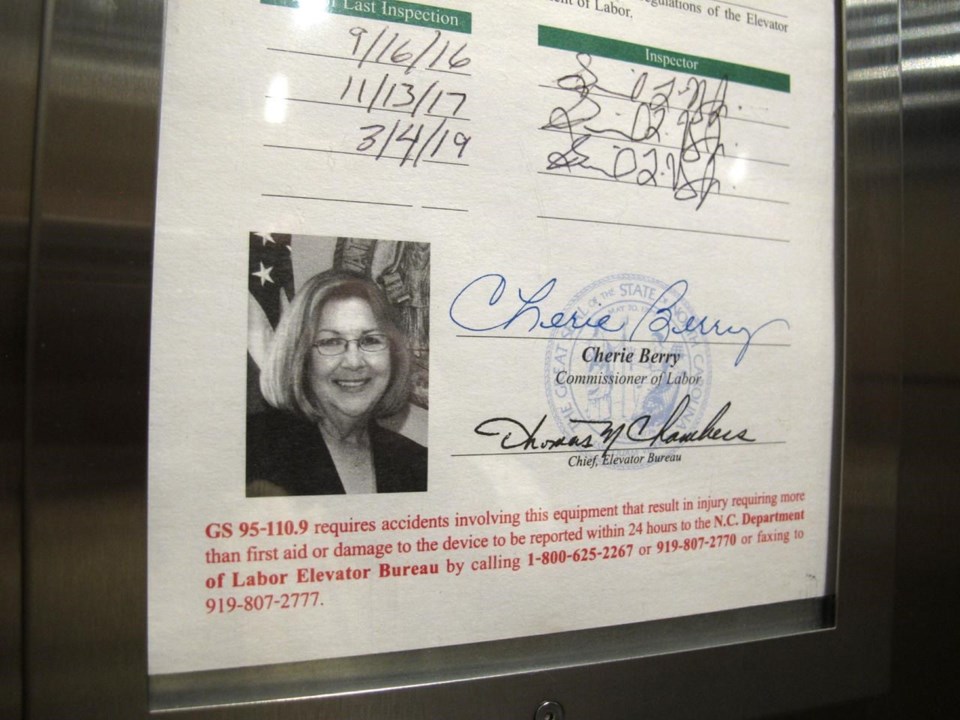 Last Inspection
of the Elevator
of Labor.
Inspector
9/16/16
11/13/17
3/4/19
Cherie Berry
THE GREAT SEAL OF THE STATE OF NORTH CAROLINA
Cherie Berry
Commissioner of Labor
Thomas N Chambers
Chief, Elevator Bureau
GS 95-110.9 requires accidents involving this equipment that result in injury requiring more
than first aid or damage to the device to be reported within 24 hours to the N.C. Department
of Labor Elevator Bureau by calling 1-800-625-2267 or 919-807-2770 or faxing to
919-807-2777.